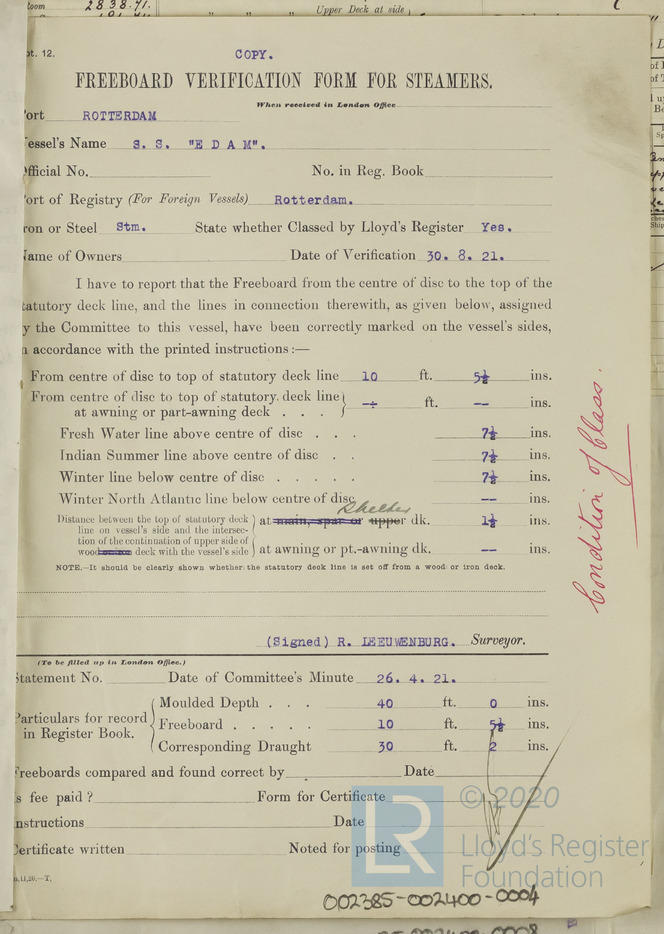 2838.71.
Upper Deck at side
t. 12.
COPY.
FREEBOARD VERIFICATION FORM FOR STEAMERS.
When received in London Office
ort ROTTERDAM
essel's Name S. S. "E D A M".
fficial No. No. in Reg. Book
ort of Registry (For Foreign Vessels) Rotterdam.
ron or Steel Stm. State whether Classed by Lloyd's Register Yes.
ame of Owners Date of Verification 30. 8. 21.
I have to report that the Freeboard from the centre of disc to the top of the
tatutory deck line, and the lines in connection therewith, as given below, assigned
y the Committee to this vessel, have been correctly marked on the vessel's sides,
n accordance with the printed instructions:—
From centre of disc to top of statutory deck line 10 ft. 5½ ins.
From centre of disc to top of statutory deck line
at awning or part-awning deck . . . -÷ ft. -- ins.
Fresh Water line above centre of disc . . . 7½ ins.
Indian Summer line above centre of disc . . 7½ ins.
Winter line below centre of disc . . . . . 7½ ins.
Winter North Atlantic line below centre of disc -- ins.
Shelter
Distance between the top of statutory deck
line on vessel's side and the intersec-
tion of the continuation of upper side of
wood deck with the vessel's side
at main, spar or upper dk. 1½ ins.
at awning or pt.-awning dk. -- ins.
NOTE.—It should be clearly shown whether the statutory deck line is set off from a wood or iron deck.
Condition of Class.
(Signed) R. LEEUWENBURG. Surveyor.
(To be filled up in London Office.)
Statement No. Date of Committee's Minute 26. 4. 21.
Particulars for record
in Register Book.
Moulded Depth . . . 40 ft. 0 ins.
Freeboard . . . . . 10 ft. 5½ ins.
Corresponding Draught 30 ft. 2 ins.
Freeboards compared and found correct by Date
s fee paid? Form for Certificate
nstructions Date
Certificate written Noted for posting
11,20.—T.
LR
© 2020
Lloyd's Register
Foundation
002385-002400-0004